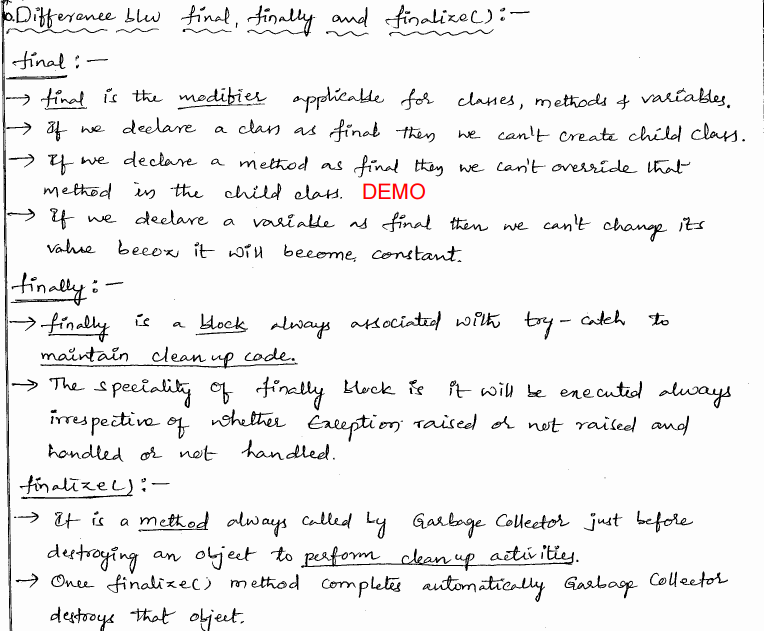 Difference b/w final, finally and finalize() :-
final :-
→ final is the modifier applicable for classes, methods & variables.
→ If we declare a class as final then we can't create child class.
→ If we declare a method as final then we can't override that
method in the child class. DEMO
→ If we declare a variable as final then we can't change its
value becoz it will become constant.
finally :-
→ finally is a block always associated with try - catch to
maintain clean up code.
→ The speciality of finally block is it will be executed always
irrespective of whether Exception raised or not raised and
handled or not handled.
finalize() :-
→ It is a method always called by Garbage Collector just before
destroying an object to perform clean up activities.
→ Once finalize() method completes automatically Garbage Collector
destroys that object.